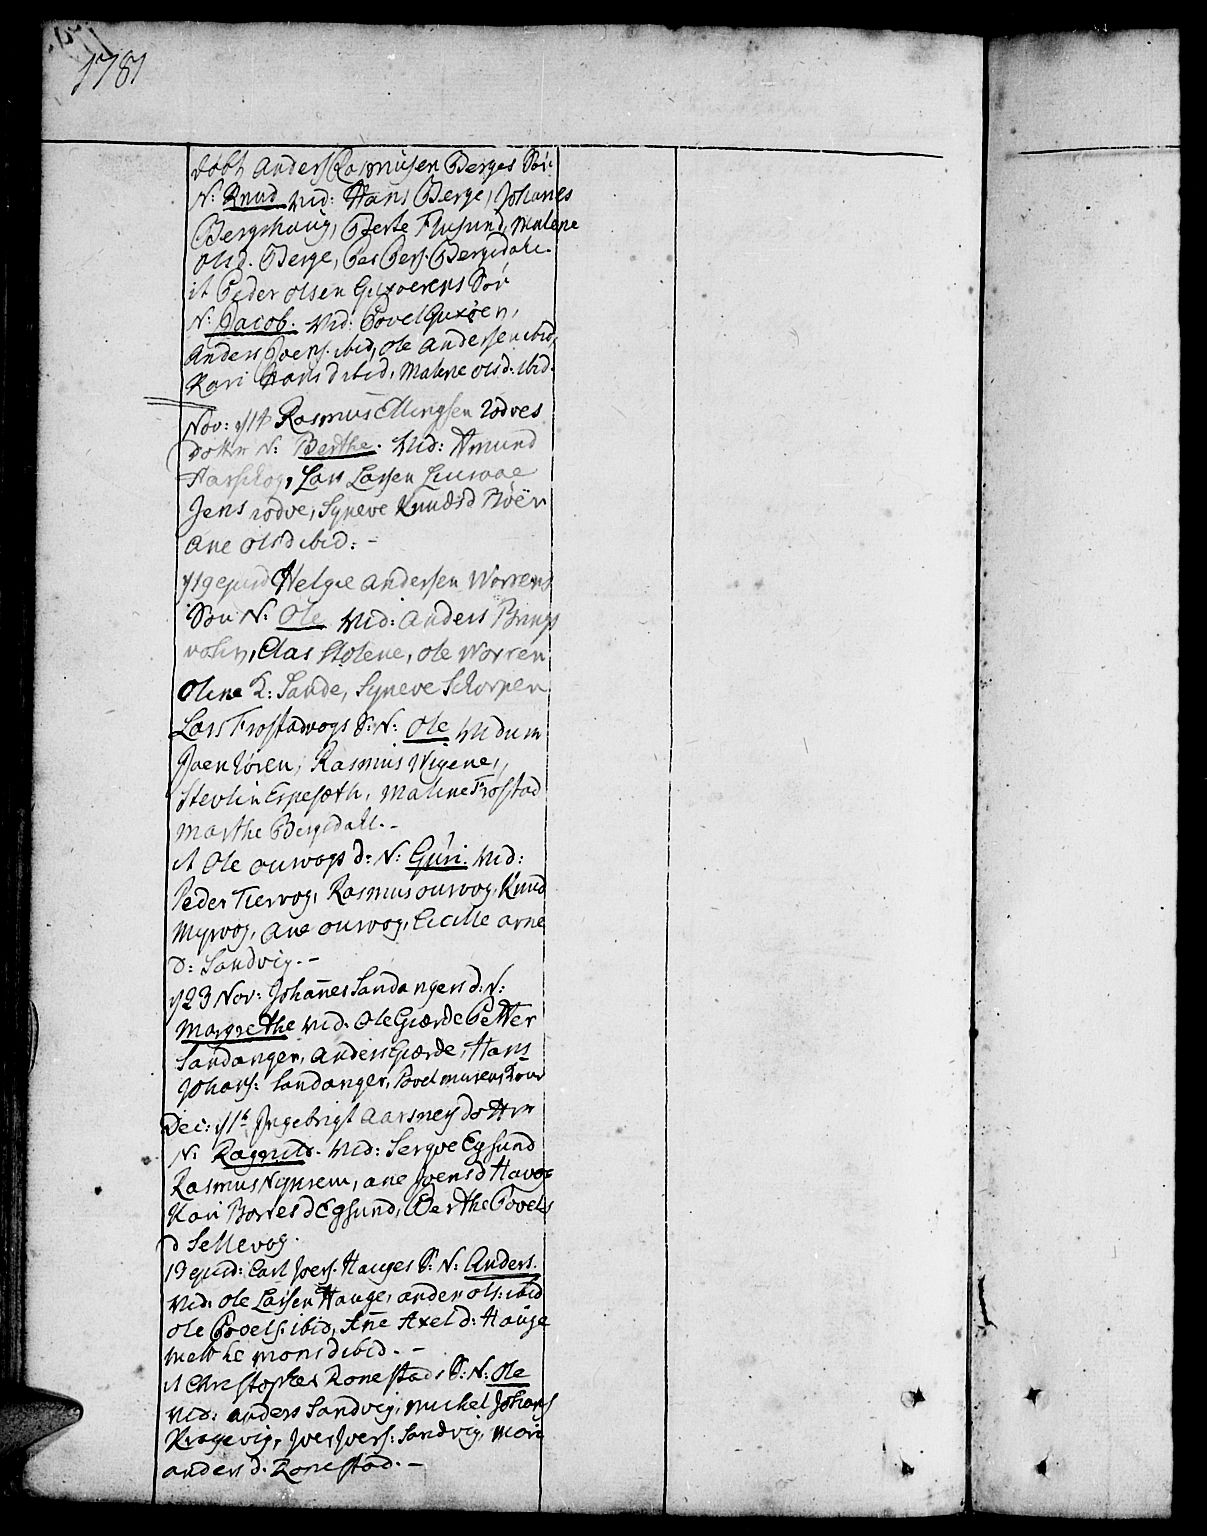 1781
døbt Anders Rasmusen Berges Søn
N: Knud Vid: Hans Berge, Johanes
Bergshaug, Berte Flusund, Malene
Olsd. Berge, Bergsdall.
it Peder Olsen Guxøerens Søn
N: Jacob. Vid: Povel Guxøen,
Anders Joens. ibid, Ole Andersen ibid,
Kari Hansd ibid, Malene Olsd: ibid.
Nov: 11 Rasmus Ellingsen Rødves
dotter N: Berthe. Vid: Amund
Lars Larsen
Jens Rødve, Syneve Knudsd
Ane Olsd ibid: -
19 ejusd Helge Andersen Worrens
Søn N: Ole Vid: Anders Brings
volen, Clas Stolene, Ole Worren
Oline K: Sande, Syneve Schorpen
Lars Frostadvogs S: N: Ole Vidum
Joen Røren, Rasmus Wigene,
Stevlin Espesæth, Maline Frostad
Marthe Bergsdall. -
it Ole Ourvogs d: N: Guri. Vid:
Peder Tiervog, Rasmus Ourvog, Knud
Myrvog, Ane Ourvog, Cicille Arne
d: Sandvig. -
23 Nov: Johanes Sandangers d: N:
Margrethe Vid. Ole Giærde Petter
Sandanger, Anders Giærde, Hans
Johans: Sandanger, Povel
Dec: 1 Ingebrigt Aarsnes dotter
N: Ragnild. Vid: Serqve Egsund
Rasmus Nyksrem, Ane Joensd Havog
Kari Borresd Egsund, Berthe Povels
d Sellevog.
13 ejusd: Carl Joers. Hauges S: N: Anders.
Vid: Ole Larsen Hauge, Anden Ols: ibid
Ole Povels: ibid, Ane Axel d: Hauge
Malthe Monsd ibid. -
it Christopher Ronestads S: N: Ole
Vid: Anders Sandvig, Michel Johans
Kragevig, Iver Ivers: Sandvig, Mari
Anders d: Ronestad. -